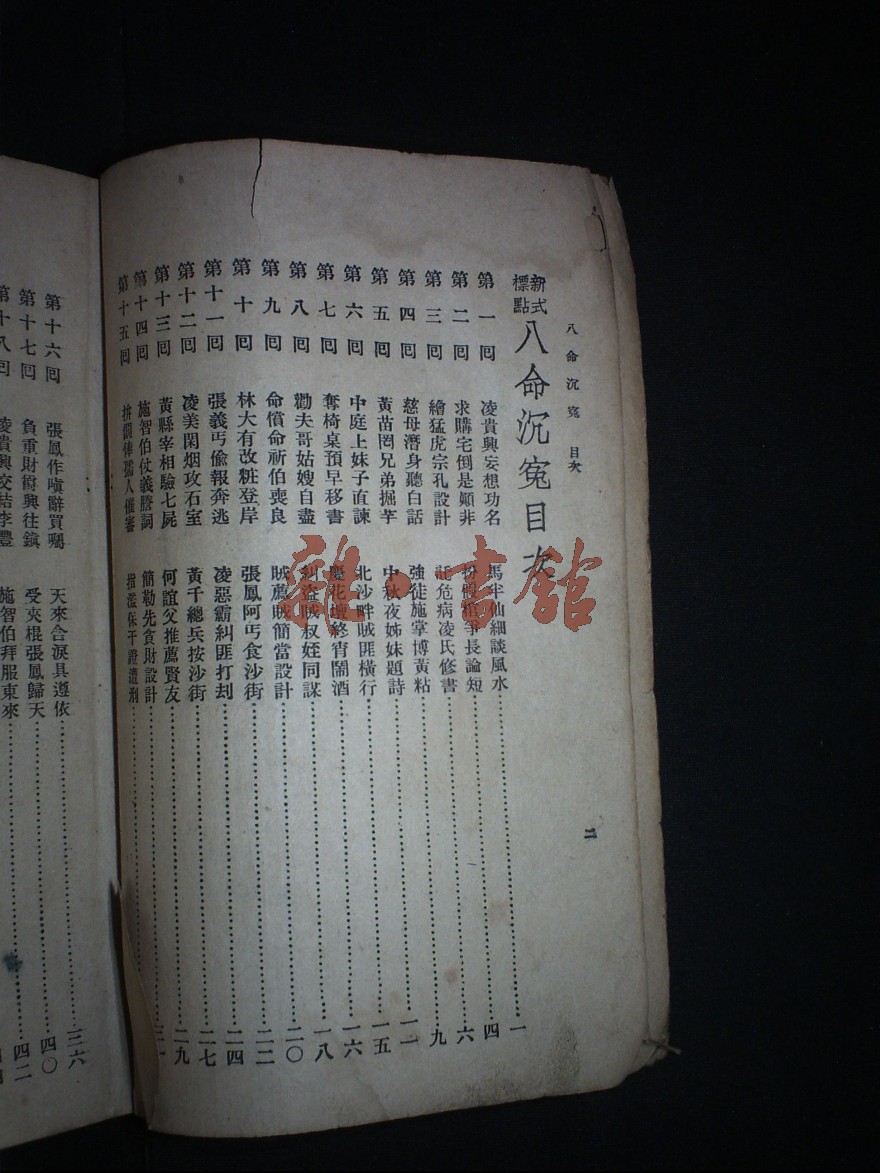 八命沉冤 目次
新式標點 八命沉冤目次
第一回 凌貴興妄想功名 馬半仙細談風水 一
第二回 求購宅倒是顚非 爭長論短 四
第三回 繪猛虎宗孔設計 託危病凌氏修書 六
第四回 慈母潛身聽白話 強徒施掌博黃粘 九
第五回 黃苗罔兄弟掘芋 中秋夜姊妹題詩 一二
第六回 中庭上妹子直諫 北沙畔賊匪橫行 一五
第七回 奪椅桌預早移書 花壇終宵鬧酒 一六
第八回 勸夫哥姑嫂自盡 糾盜賊叔姪同謀 一八
第九回 命償命祈伯喪良 賊薦賊簡當設計 二〇
第十回 林大有改粧登岸 張鳳阿丐食沙街 二二
第十一回 張義丐偸報奔逃 凌惡霸糾匪打刦 二四
第十二回 凌美閑烟攻石室 黃千總兵按沙街 二七
第十三回 黃縣宰相驗七屍 何誼父推薦賢友 二九
第十四回 施智伯仗義謄詞 簡勒先貪財設計 三一
第十五回 人催審 干證遭刑
第十六回 張鳳作嗔辭買囑 天來含淚具遵依 三六
第十七回 負重財爵興往鎭 受夾棍張鳳歸天 四〇
第十八回 凌貴興交結李豐 施智伯拜服東來 四二
二
雜·書館